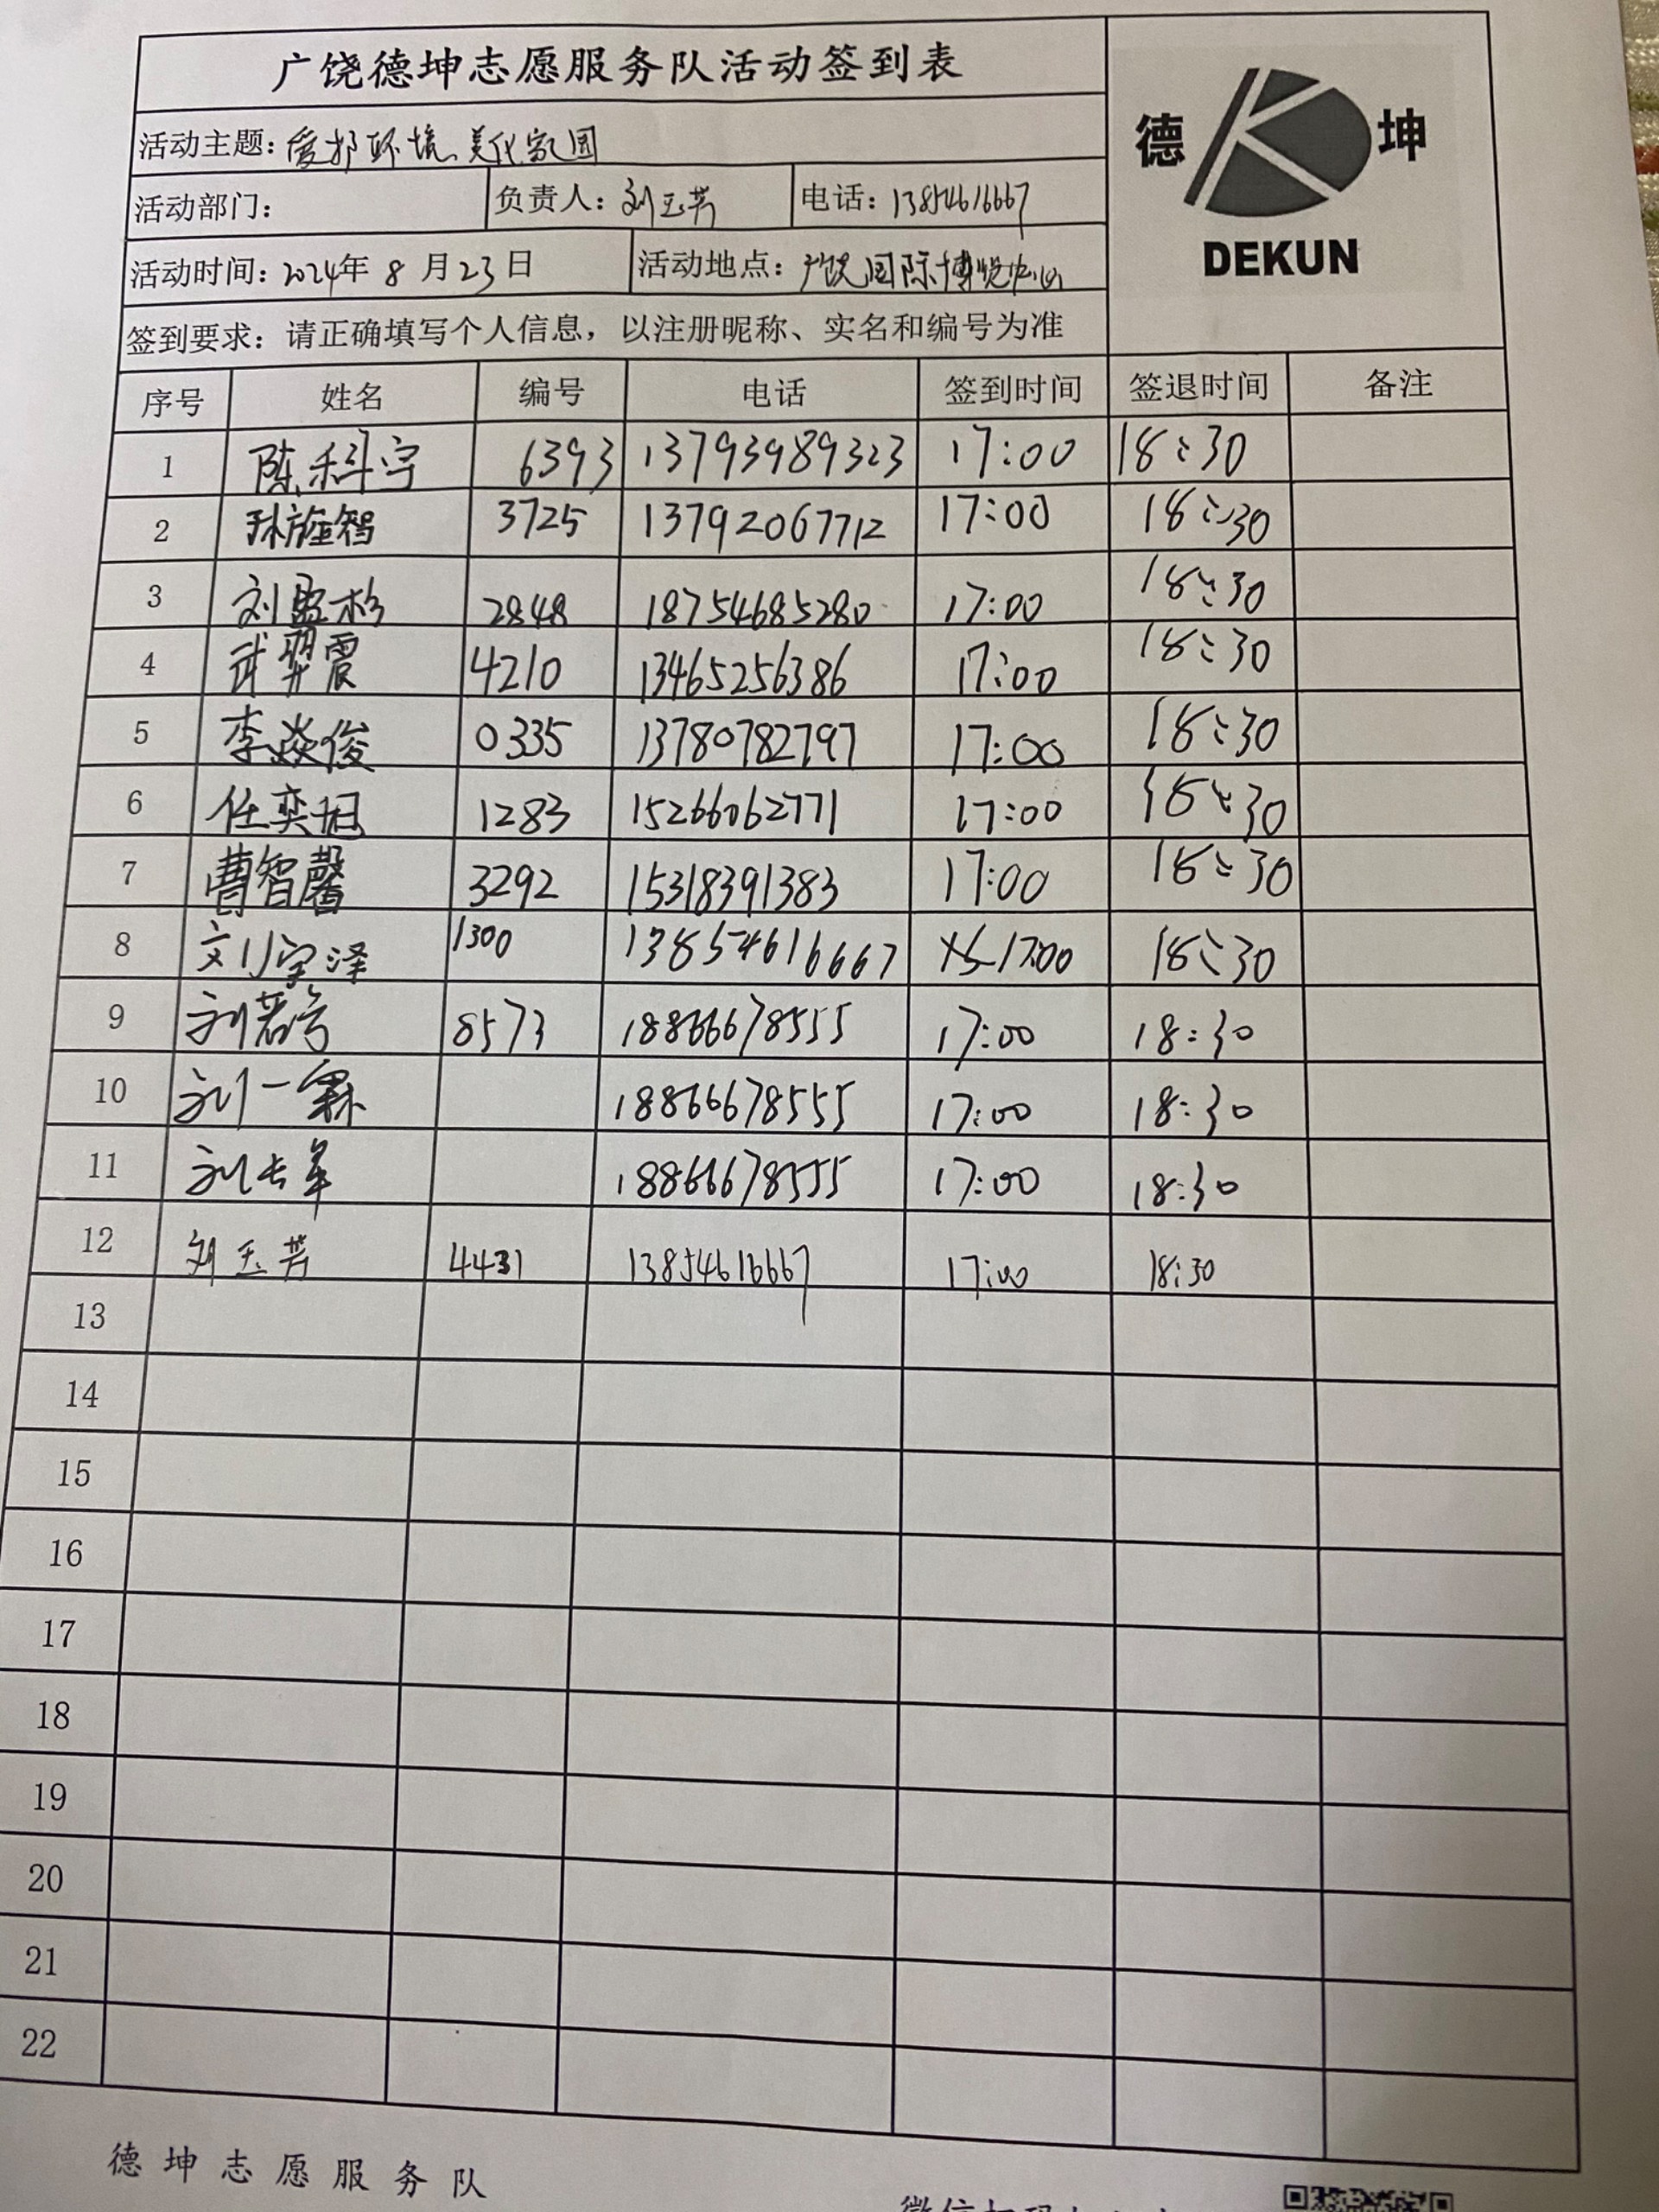 广饶德坤志愿服务队活动签到表
德 坤
DEKUN
活动主题：爱护环境、美化家园
活动部门： 负责人：刘玉芳 电话：13854616667
活动时间：2024年 8 月 23 日 活动地点：广饶国际博览中心
签到要求：请正确填写个人信息，以注册昵称、实名和编号为准
序号 姓名 编号 电话 签到时间 签退时间 备注
1 陈科宇 6393 13793989323 17:00 18:30
2 孙旌智 3725 13792067712 17:00 18:30
3 刘盟杉 2848 18754685280 17:00 18:30
4 武羿震 4210 13465256386 17:00 18:30
5 李焱俊 0335 13780782797 17:00 18:30
6 任奕旭 1283 15266062771 17:00 18:30
7 曹智馨 3292 15318391383 17:00 18:30
8 刘宝泽 1300 13854616667 17:00 18:30
9 刘若兮 8573 18866678555 17:00 18:30
10 刘一霖 18866678555 17:00 18:30
11 刘长军 18866678555 17:00 18:30
12 刘玉芳 4431 13854616667 17:00 18:30
13
14
15
16
17
18
19
20
21
22
德坤志愿服务队